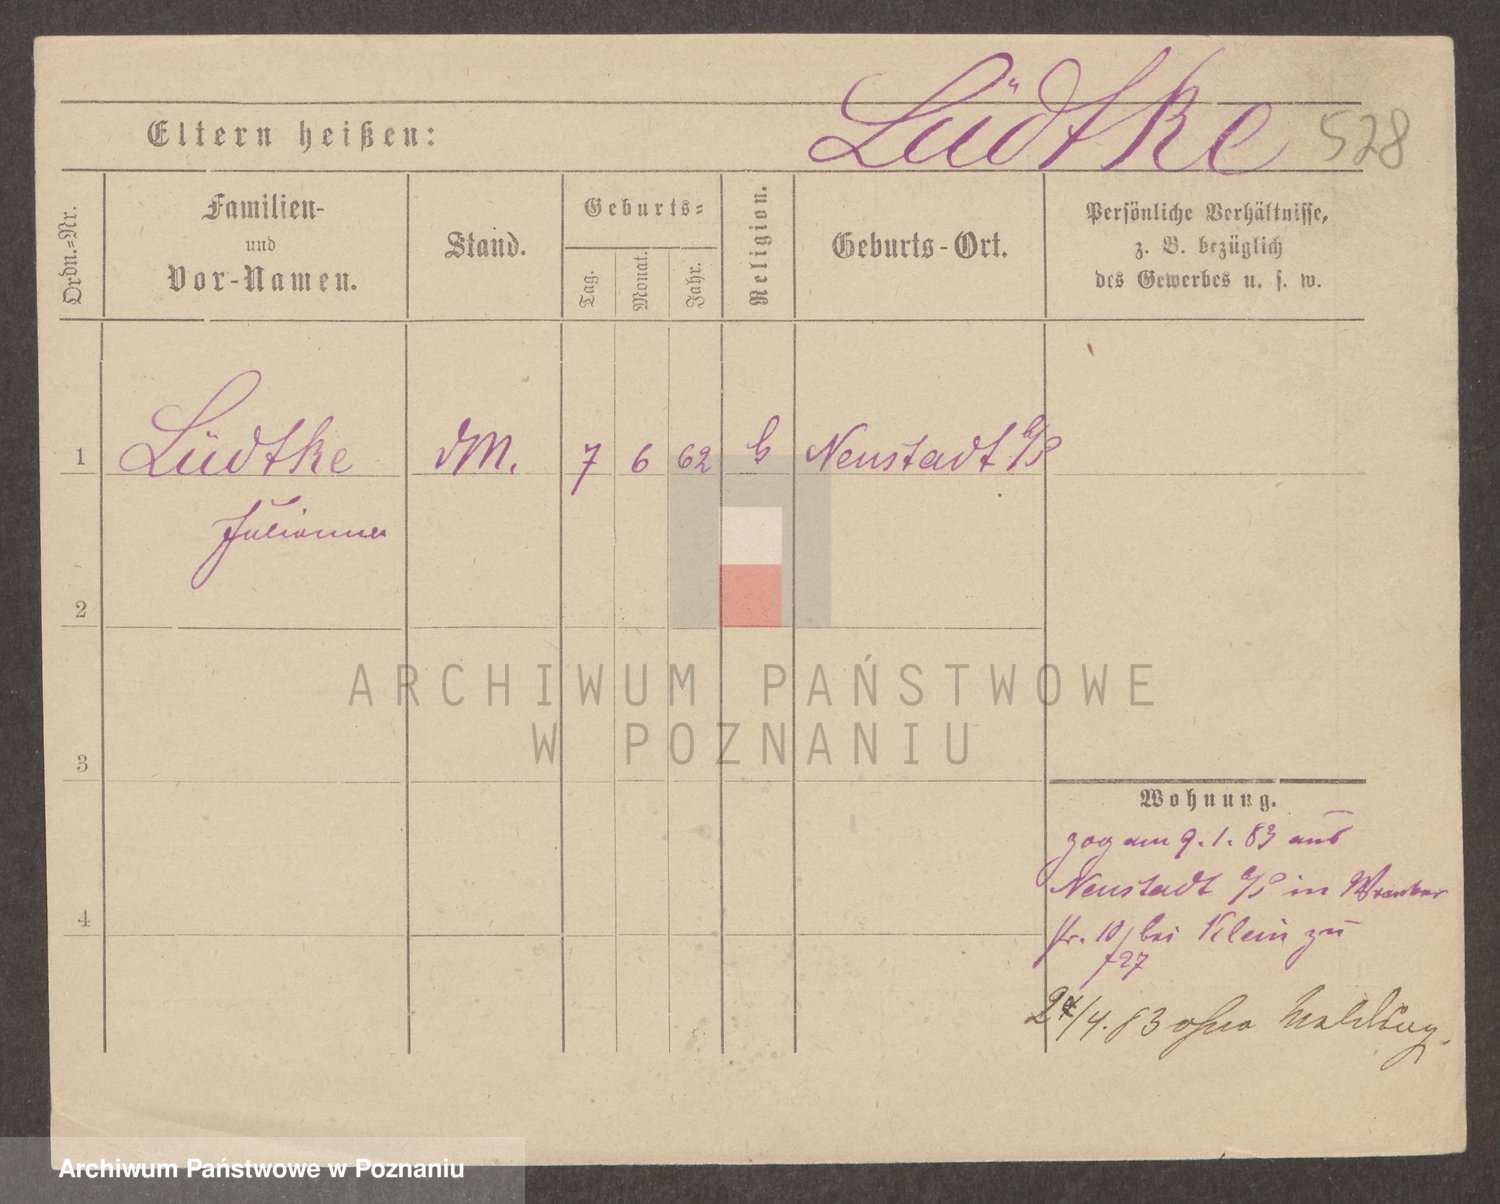 Lüdtke 528
Eltern heißen:
Ordn.=Nr.
Familien-
und
Vor-Namen.
Stand.
Geburts=
Tag.
Monat.
Jahr.
Religion.
Geburts-Ort.
Persönliche Verhältnisse,
z. B. bezüglich
des Gewerbes u. s. w.
1 Lüdtke dM. 7 6 62 Neustadt
Julianna
2
3
4
ARCHIWUM PAŃSTWOWE
W POZNANIU
Wohnung.
zog am 9.1.83 aus
Neustadt in
str. 10 bei Klein zu
/27
/4. 83 ohne Meldung.
Archiwum Państwowe w Poznaniu